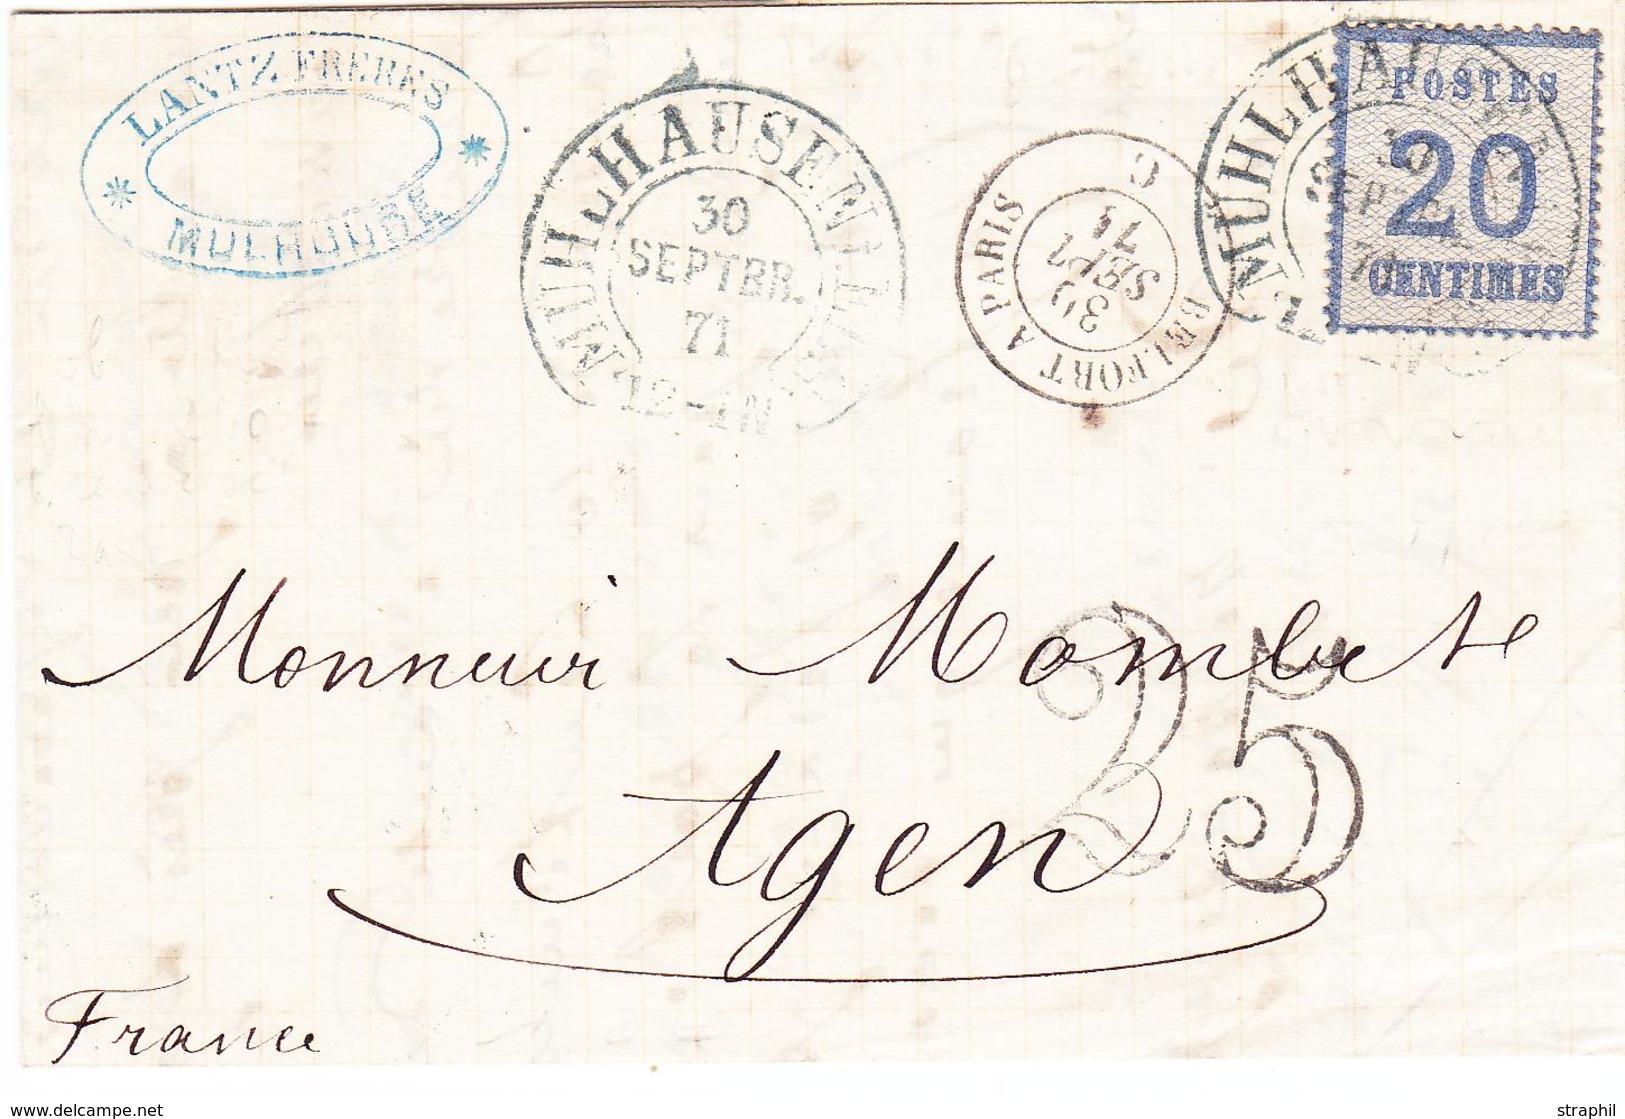 LANTZ FRERES
MULHOUSE
MÜHLHAUSEN I. ELSASS
30
SEPTBR.
71
12-1N
BELFORT A PARIS
C
30
SEPT
71
MÜHLHAUSEN
30
POSTES
20
CENTIMES
Monsieur Mombet
25
Agen
France
www.delcampe.net
straphil